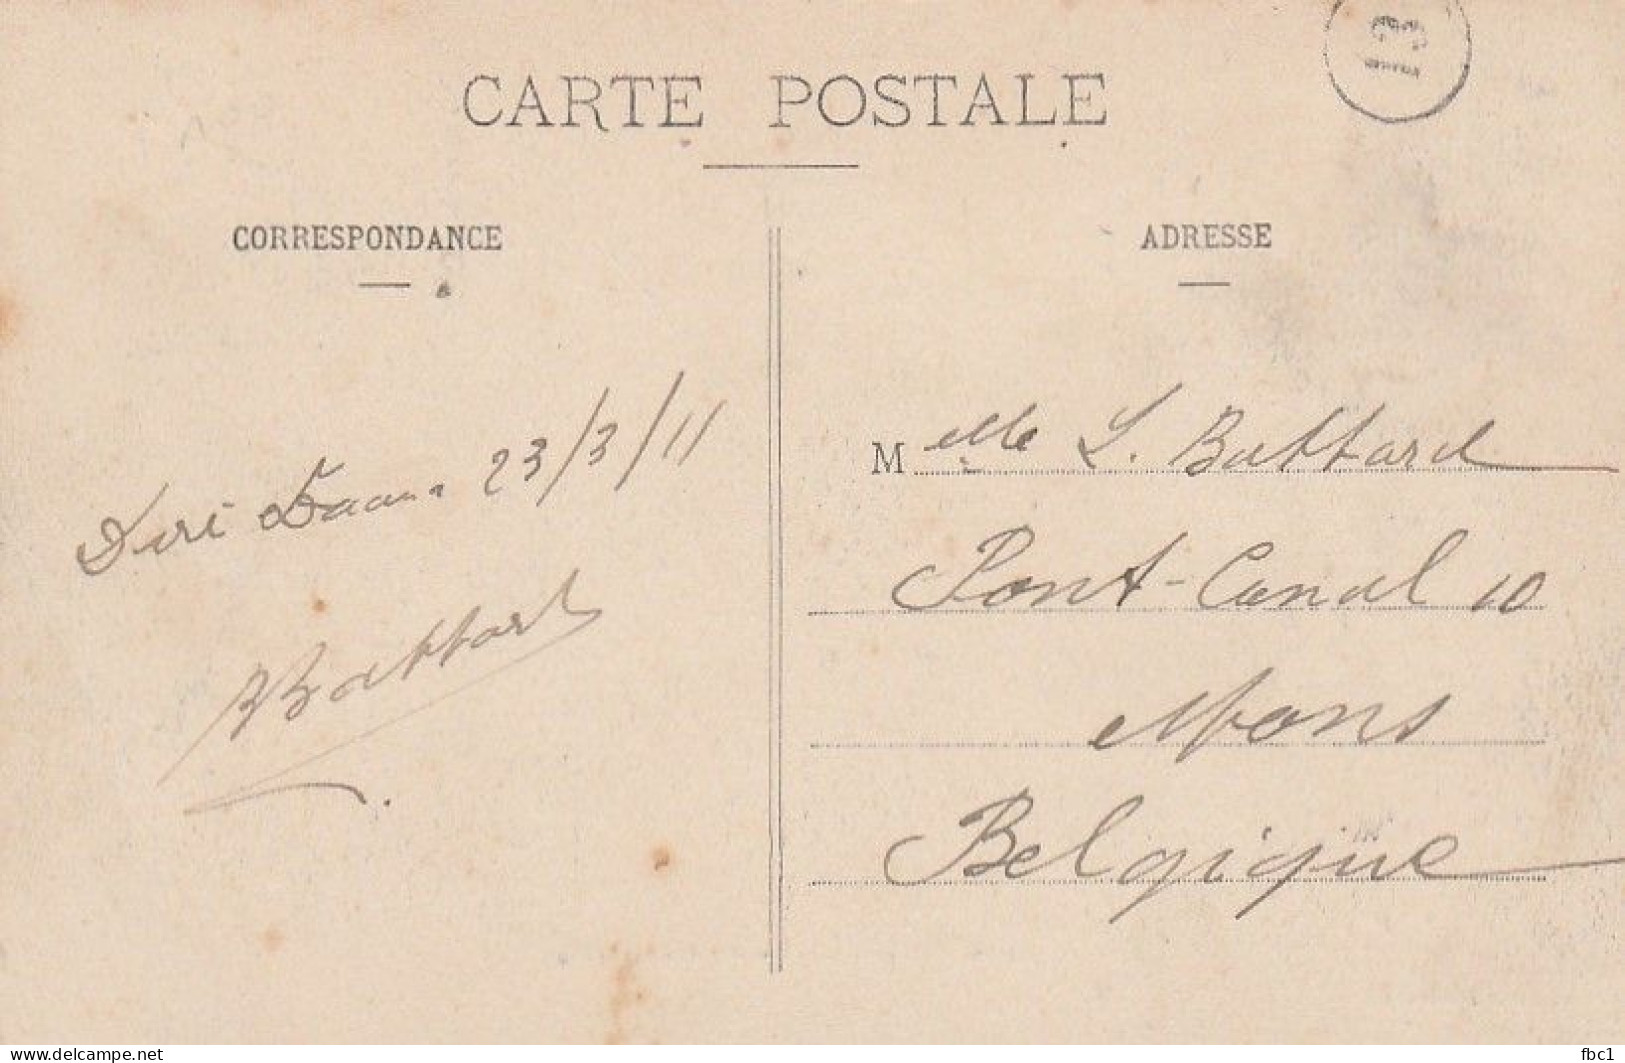 CARTE POSTALE
CORRESPONDANCE
ADRESSE
Diré Daoua 23/3/11
Battard
Melle L. Battard
Pont-Canal 10
Mons
Belgique
delcampe.net
fbc1